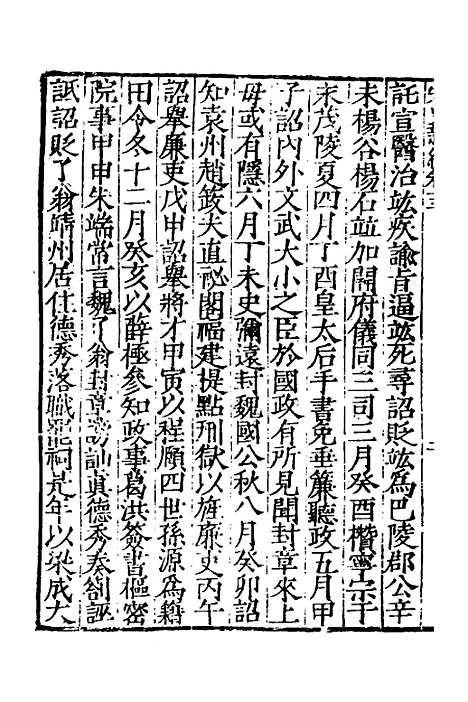 託宣醫治竑疾諭旨逼竑死尋詔貶竑為巴陵郡公辛
未楊谷楊石竝加開府儀同三司三月癸酉欑寧宗于
永茂陵夏四月丁酉皇太后手書免垂簾聽政五月甲
子詔內外文武大小之臣於國政有所見聞封章來上
毋或有隱六月丁未史彌遠封魏國公秋八月癸卯詔
知袁州趙䇓夫直祕閣福建提點刑獄以旌廉吏丙午
詔舉廉吏戊申詔舉將才甲寅以程頤四世孫源為籍
田令冬十二月癸亥以薛極參知政事葛洪簽書樞密
院事甲申朱端常言魏了翁封章謗訕真德秀奏劄誣
詆詔貶了翁靖州居住德秀落職罷祠是年以梁成大